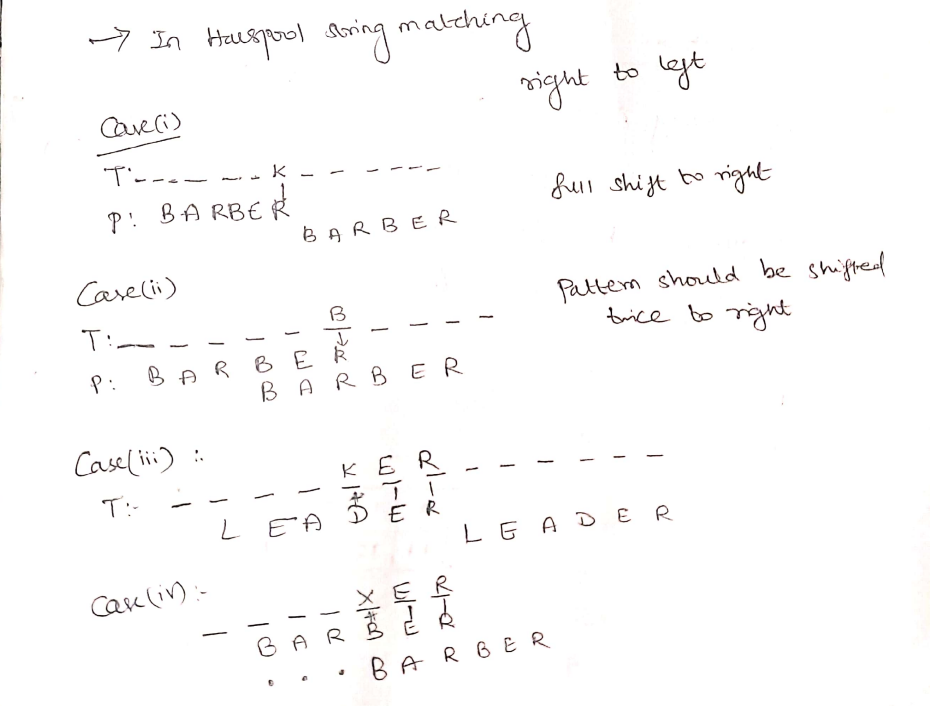 → In Hauspool string matching
right to left
Case(i)
T:- - - - - - - K - - - - - -
P: BARBER
BARBER
full shift to right
Case(ii)
Pattern should be shifted
twice to right
B
T:- - - - - - - - - -
P: B A R B E R
B A R B E R
Case(iii) :.
K E R
T:- - - - - - - - - - -
L E A D E R
L E A D E R
Case(iv) :-
- - - - X E R
B A R B E R
. . . B A R B E R